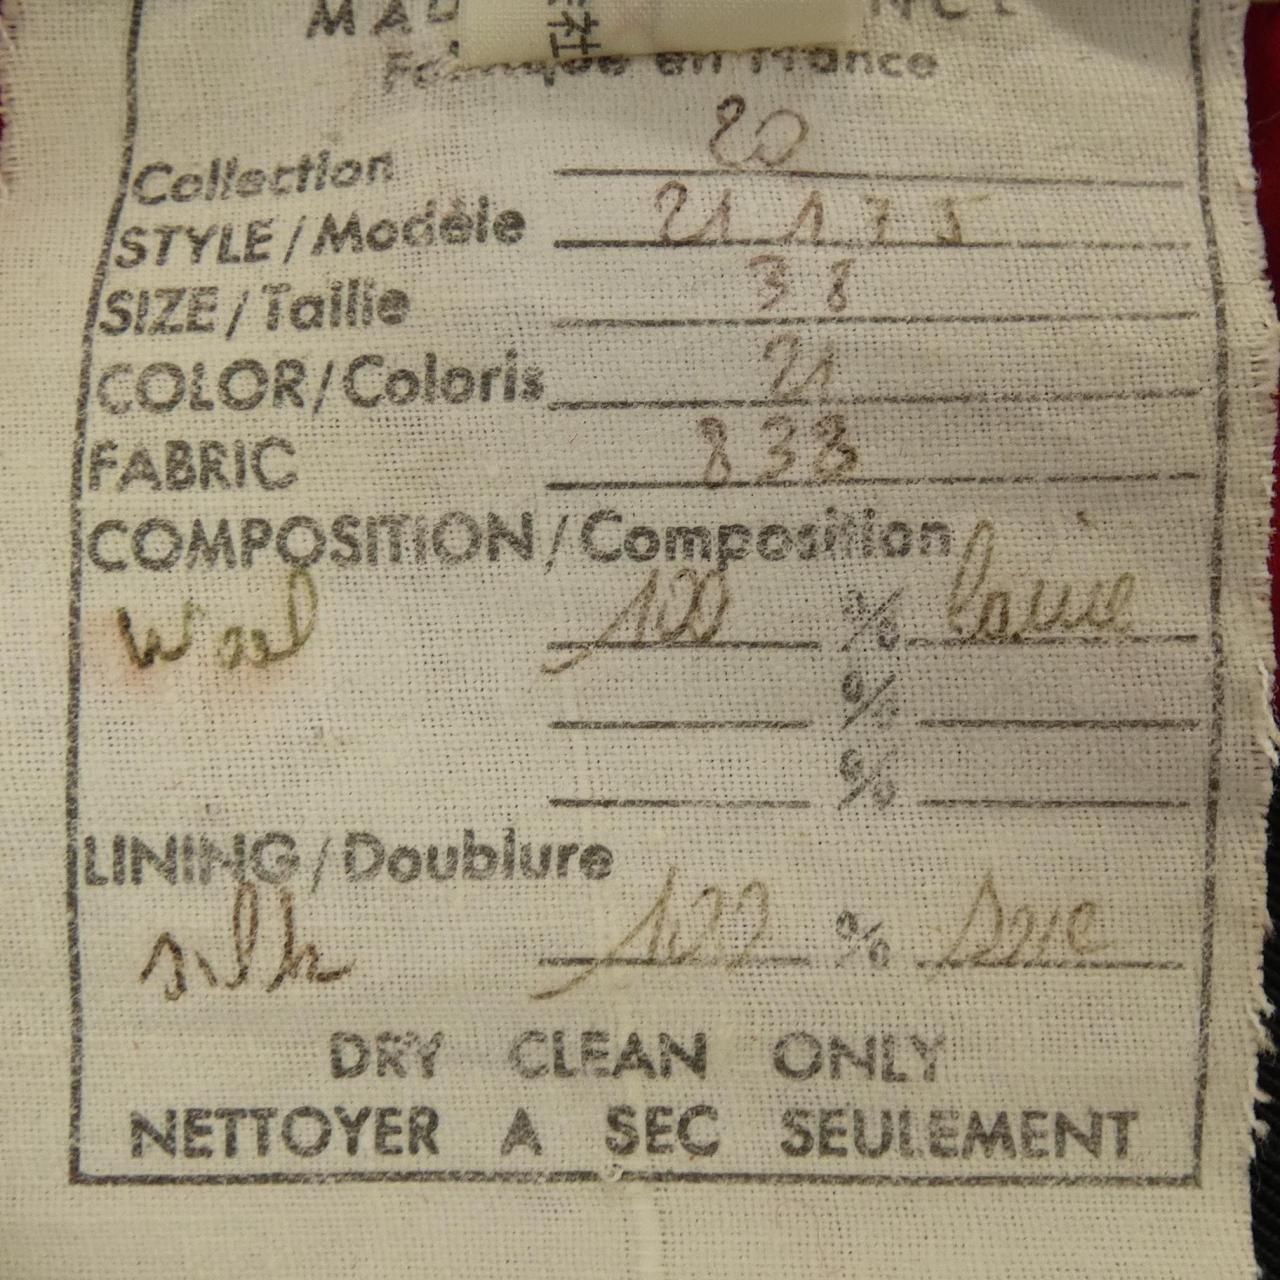 社
en France
Collection 20
STYLE / Modèle 21 1 7 5
SIZE / Taille 38
COLOR / Coloris 21
FABRIC 838
COMPOSITION / Composition
Wool 100 % laine
%
%
LINING / Doublure
silk 100 % soie
DRY CLEAN ONLY
NETTOYER A SEC SEULEMENT